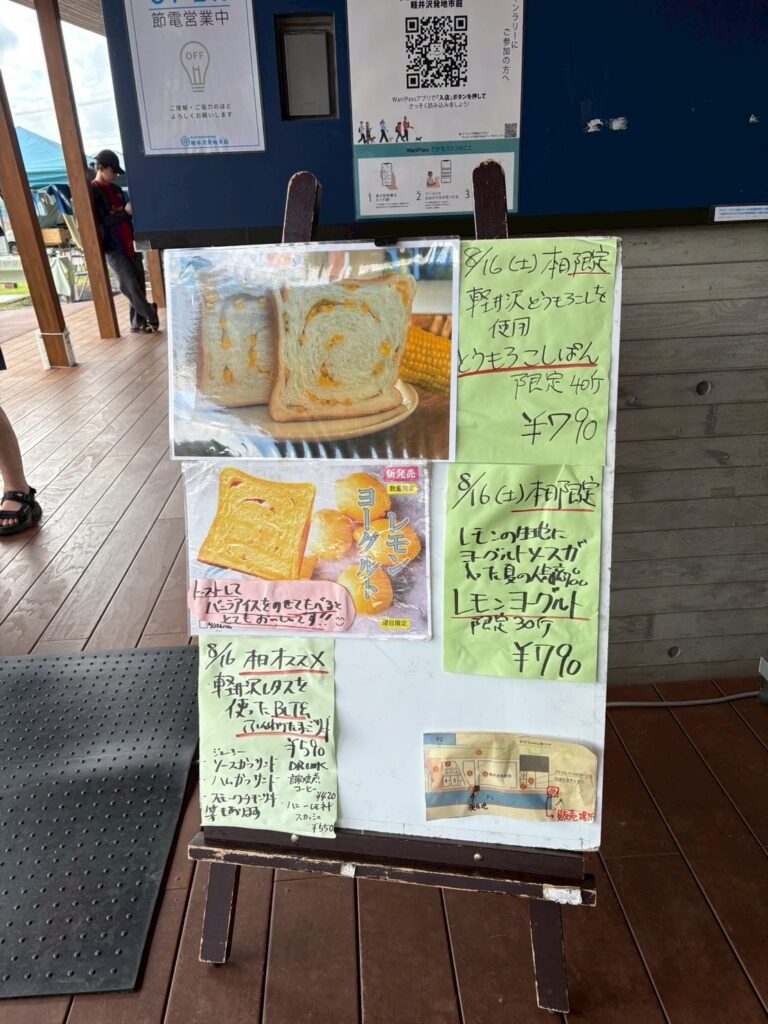 節電営業中
OFF
ご理解・ご協力のほど
よろしくお願いします
軽井沢発地市庭
軽井沢発地市庭
ご参加の方へ
Wan!Passアプリで「入店」ボタンを押して
さっそく読み込みましょう!
1
2
3
8/16(土)本日限定
軽井沢とうもろこしを
使用
とうもろこしぱん
限定40斤
¥790
新発売
数量限定
レモン
ヨーグルト
トーストして
バニラアイスをのせてたべると
とてもおいしいです!!
8/16(土)本日限定
レモンの生地に
ヨーグルト
レモンヨーグルト
限定30斤
¥790
8/16 本日オススメ
軽井沢レタスを
使ったBLTE
ふんわりたまごサンド
¥590
ジューシー
・ソースカツサンド
・ハムカツサンド
等もあります
DRINK
コーヒー
¥420
・ハニーレモネード
スカッシュ
¥550
現在地
販売場所